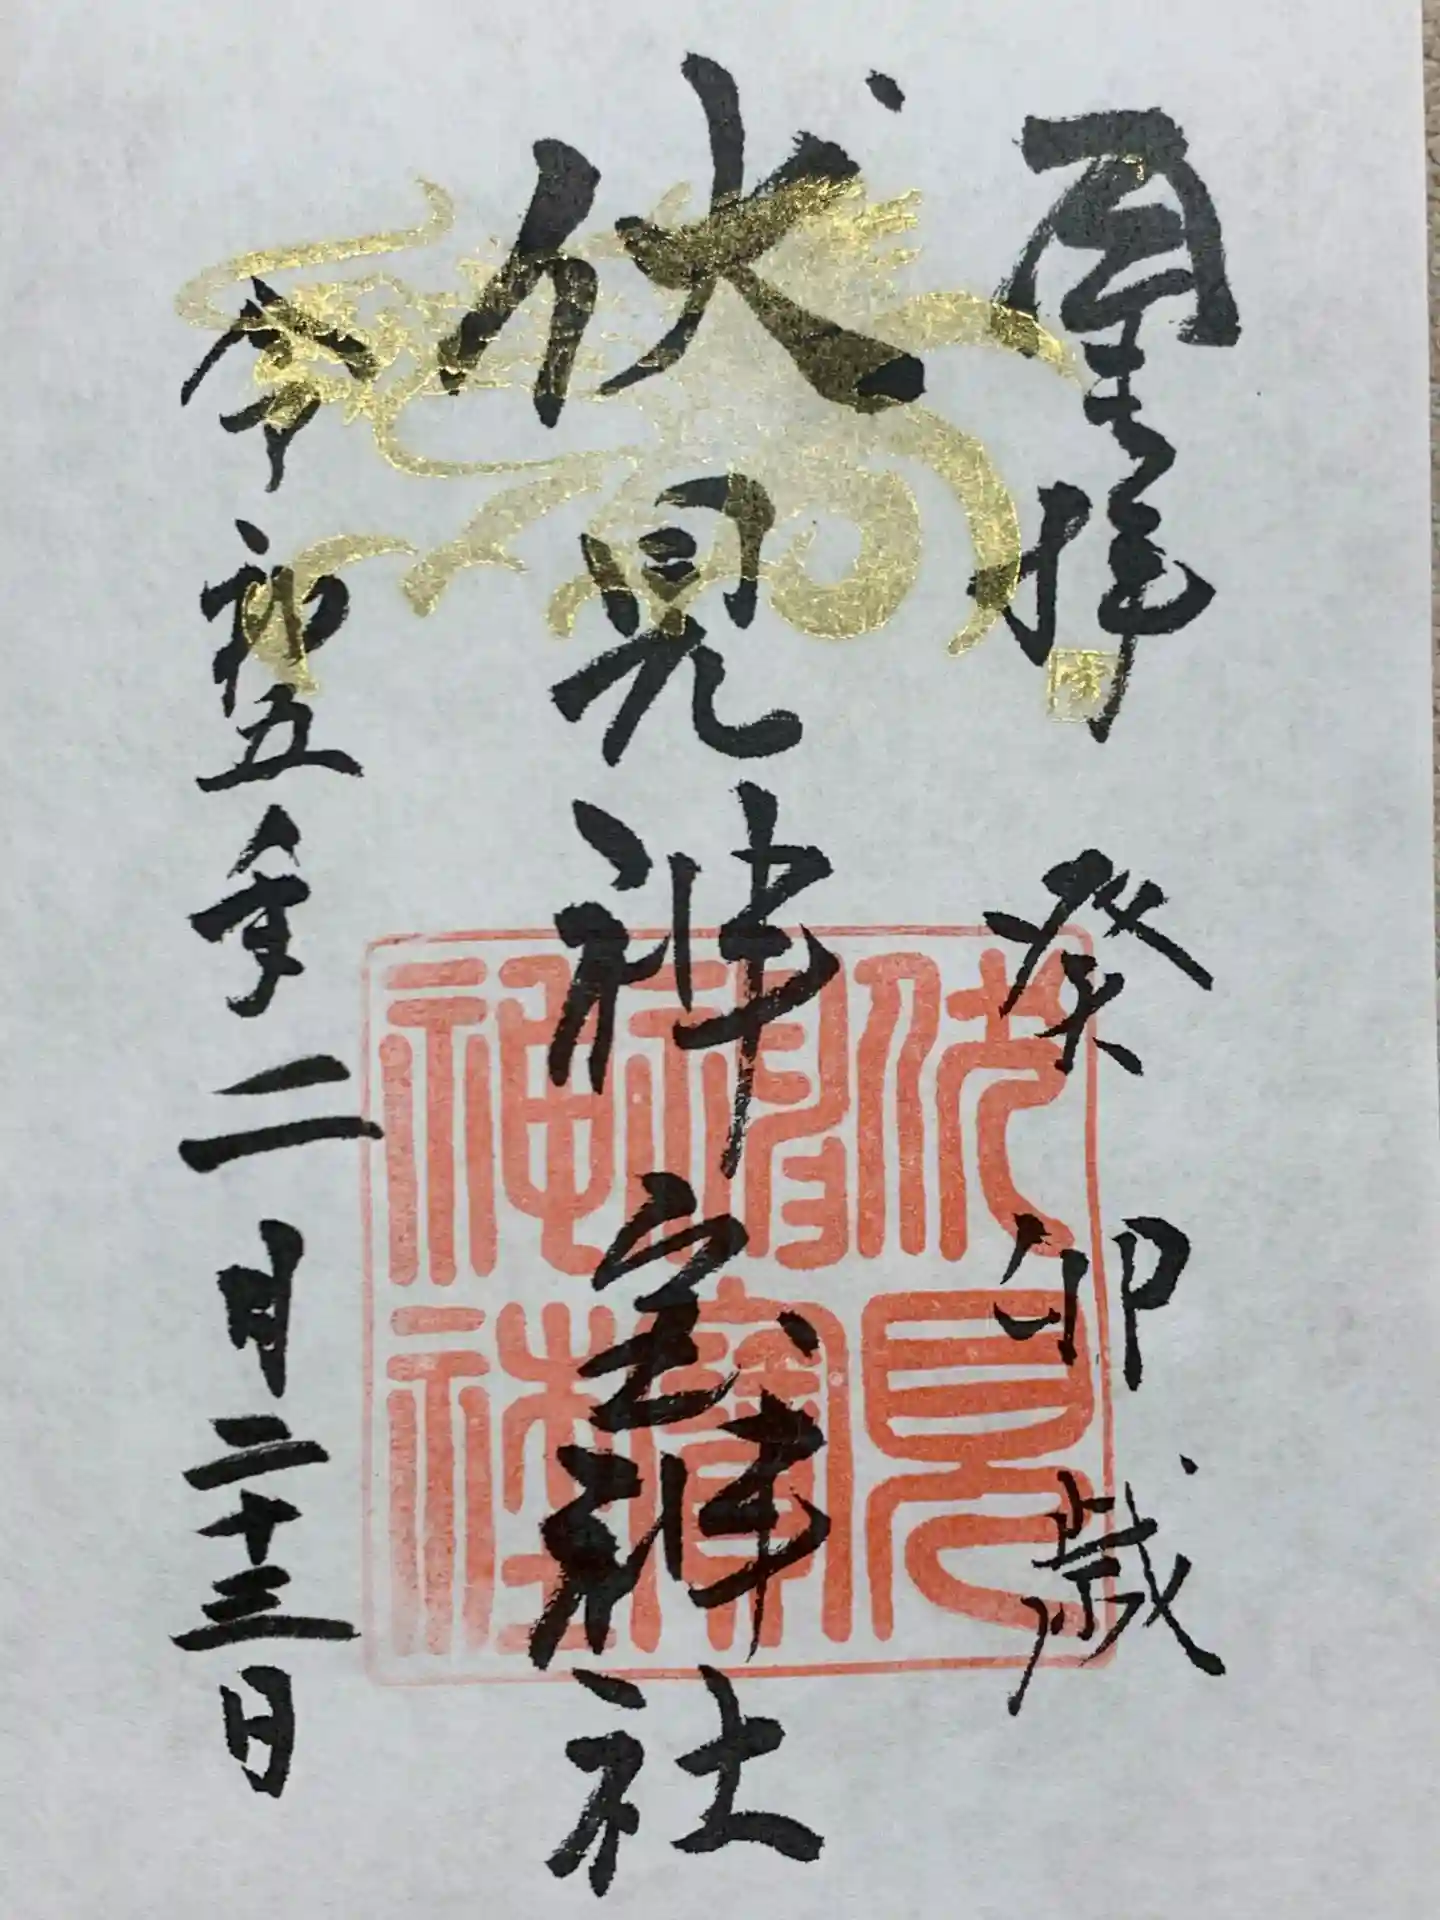 奉拝 癸卯歳
伏見神宝神社
令和五年二月二十三日
伏見
神寶
神社